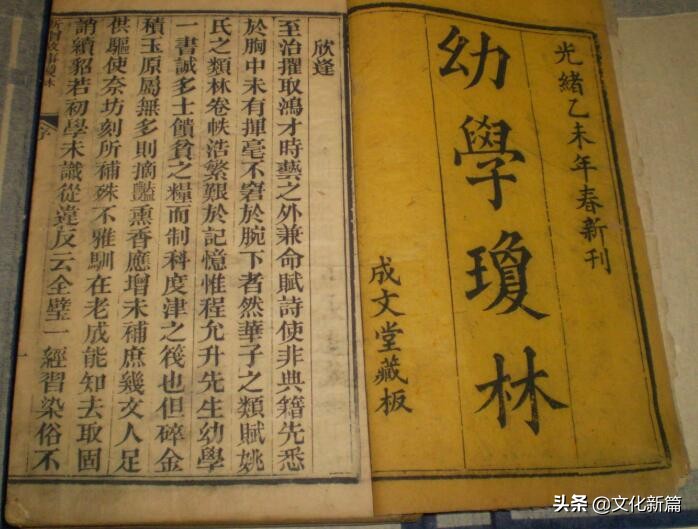 光緒乙未年春新刊
幼學瓊林
成文堂藏板
欣逢
至治擢取鴻才時藝之外兼命賦詩使非典籍先悉
於胸中未有揮毫不窘於腕下者然華子之類賦姚
氏之類林卷帙浩繁艱於記憶惟程允升先生幼學
一書誠多士饋貧之糧而制科度津之筏也但碎金
積玉原屬無多則摘豔熏香應增未補庶幾文人足
供驅使奈坊刻所補殊不雅馴在老成能知去取固
誚續貂若初學未識從違反云全璧一經習染俗不
头条 @文化新篇